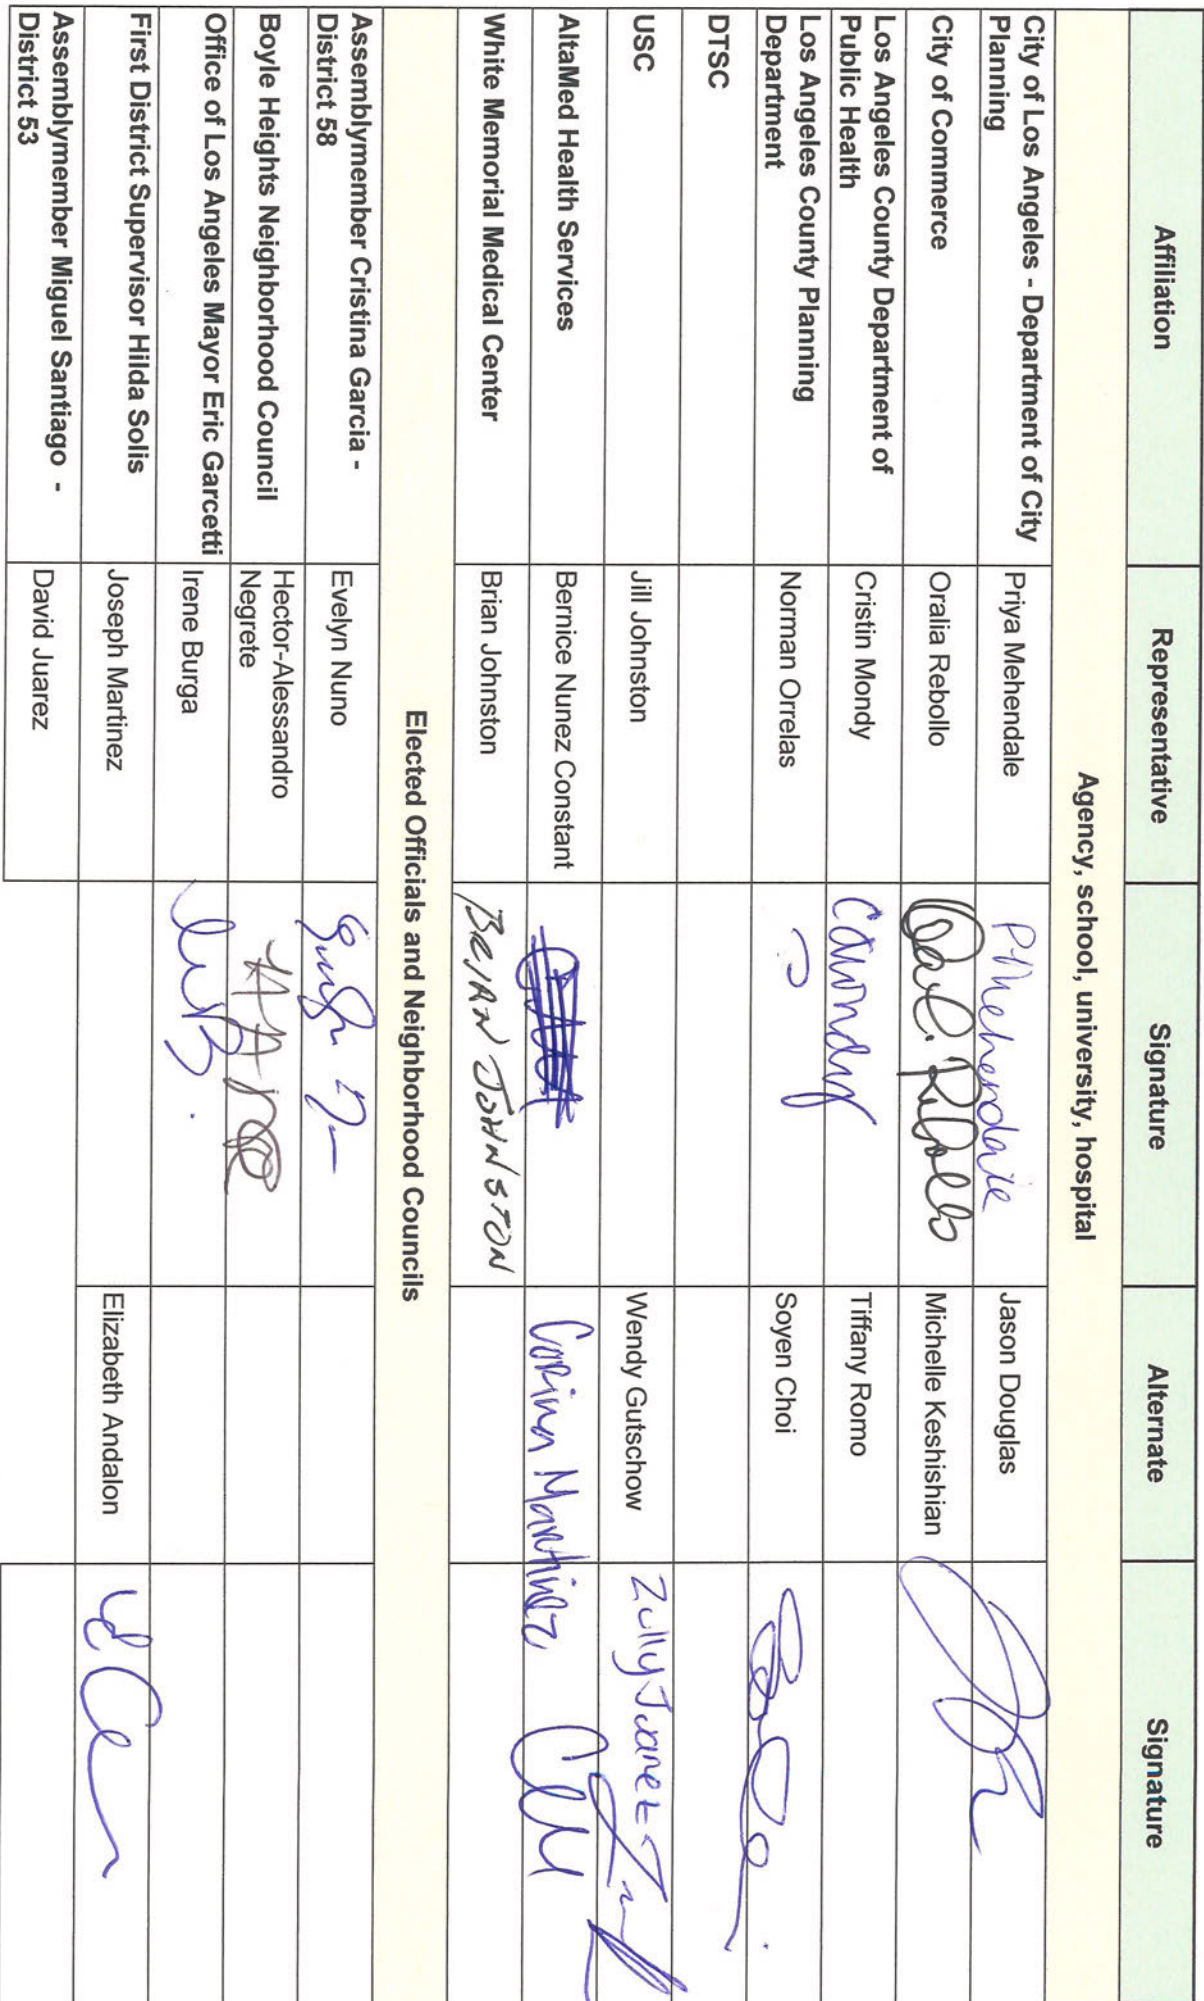 Affiliation Representative Signature Alternate Signature
Agency, school, university, hospital
City of Los Angeles - Department of City
Planning
Priya Mehendale
PMehendale
Jason Douglas
City of Commerce
Oralia Rebollo
Michelle Keshishian
Los Angeles County Department of
Public Health
Cristin Mondy
CAMondy
Tiffany Romo
Los Angeles County Planning
Department
Norman Orrelas
Soyen Choi
DTSC
USC
Jill Johnston
Wendy Gutschow
Zully Juarez
AltaMed Health Services
Bernice Nunez Constant
Corina Martinez
White Memorial Medical Center
Brian Johnston
BRIAN JOHNSTON
Elected Officials and Neighborhood Councils
Assemblymember Cristina Garcia -
District 58
Evelyn Nuno
Boyle Heights Neighborhood Council
Hector-Alessandro
Negrete
Office of Los Angeles Mayor Eric Garcetti
Irene Burga
First District Supervisor Hilda Solis
Joseph Martinez
Elizabeth Andalon
Assemblymember Miguel Santiago -
District 53
David Juarez